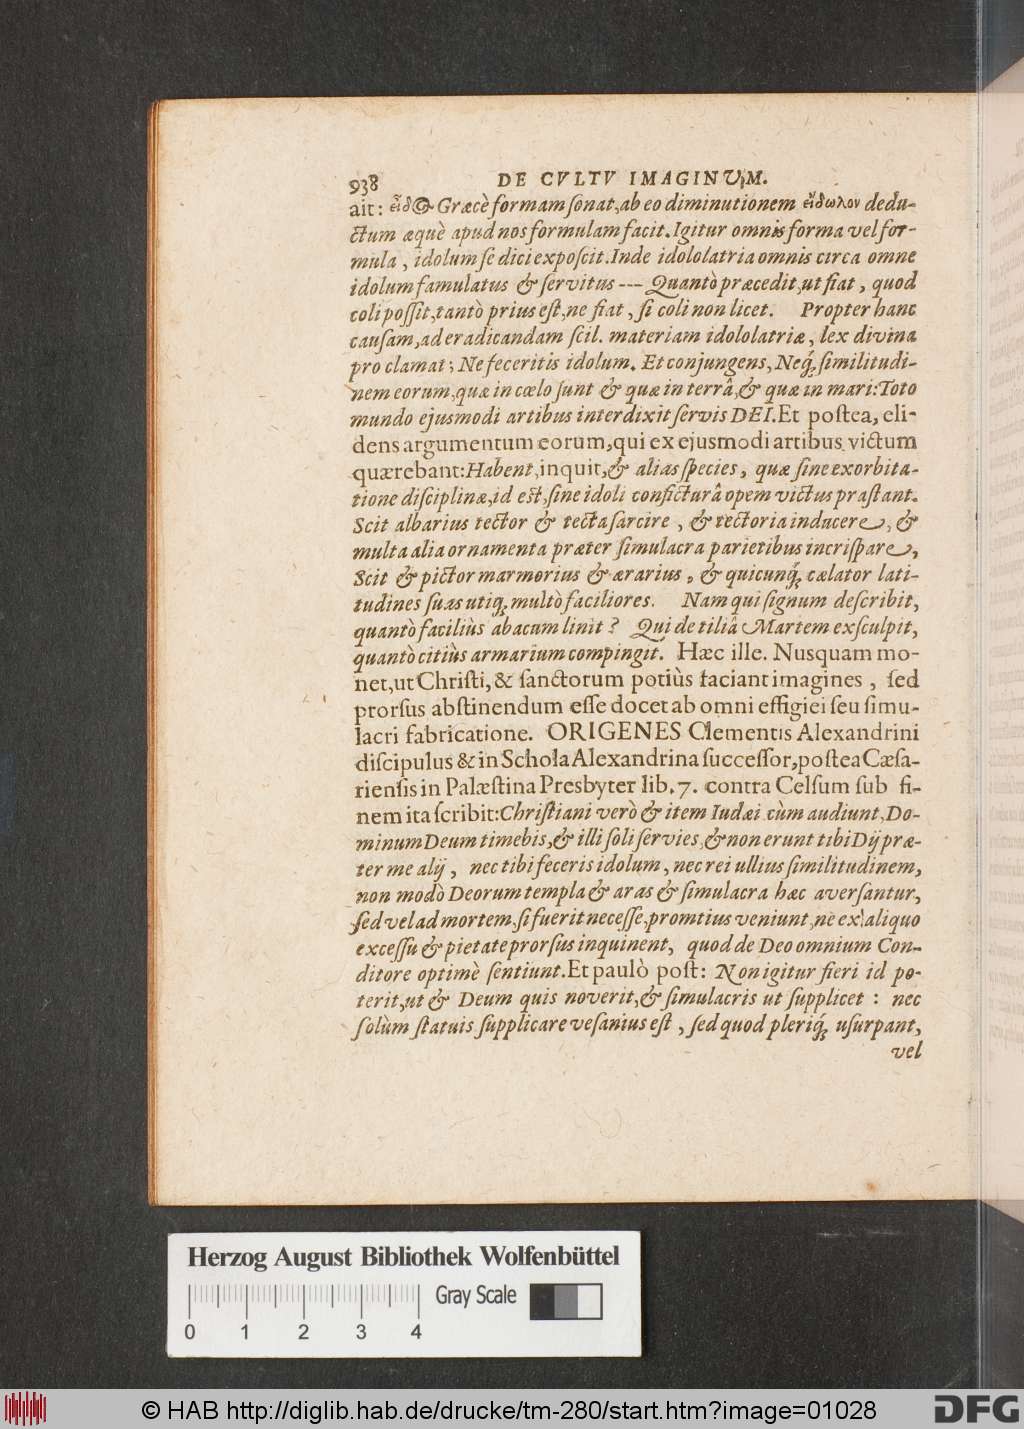 938 DE CVLTV IMAGINUM.
ait: εἶδος Græcè formam ſonat, ab eo diminutionem εἴδωλον dedu-
ctum æquè apud nos formulam facit. Igitur omnis forma vel for-
mula, idolum ſe dici expoſcit. Inde idololatria omnis circa omne
idolum famulatus & ſervitus --- Quantò præcedit, ut fiat, quod
coli poſſit, tantò prius eſt, ne fiat, ſi coli non licet. Propter hanc
cauſam, ad eradicandam ſcil. materiam idololatriæ, lex divina
proclamat; Ne feceritis idolum. Et conjungens, Neq́; ſimilitudi-
nem eorum, quæ in cœlo ſunt & quæ in terrâ, & quæ in mari: Toto
mundo ejusmodi artibus interdixit ſervis DEI. Et poſtea, eli-
dens argumentum eorum, qui ex ejusmodi artibus victum
quærebant: Habent, inquit, & alias ſpecies, quæ ſine exorbita-
tione diſciplinæ, id eſt, ſine idoli confictur​â opem victus præſtant.
Scit albarius tector & tecta ſarcire, & tectoria inducere, &
multa alia ornamenta præter ſimulacra parietibus incriſpare,
Scit & pictor marmorius & ærarius, & quicunq́; cælator lati-
tudines ſuas utiq; multò faciliores. Nam qui ſignum deſcribit,
quantò faciliùs abacum linit? Qui de tiliâ Martem exſculpit,
quantò citiùs armarium compingit. Hæc ille. Nusquam mo-
net, ut Chriſti, & ſanctorum potiùs faciant imagines, ſed
prorſus abſtinendum eſſe docet ab omni effigiei ſeu ſimu-
lacri fabricatione. ORIGENES Clementis Alexandrini
diſcipulus & in Schola Alexandrina ſucceſſor, poſtea Cæſa-
rienſis in Palæſtina Presbyter lib. 7. contra Celſum ſub fi-
nem ita ſcribit: Chriſtiani verò & item Iudæi cùm audiunt, Do-
minum Deum timebis, & illi ſoli ſervies, & non erunt tibi Dij præ-
ter me alij, nec tibi feceris idolum, nec rei ullius ſimilitudinem,
non modò Deorum templa & aras & ſimulacra hæc averſantur,
ſed vel ad mortem, ſi fuerit neceſſe, promtius veniunt, ne ex aliquo
exceſſu & pietate prorſus inquinent, quod de Deo omnium Con-
ditore optimè ſentiunt. Et paulò poſt: Non igitur fieri id po-
terit, ut & Deum quis noverit, & ſimulacris ut ſupplicet: nec
ſolùm ſtatuis ſupplicare veſanius eſt, ſed quod pleriq́; uſurpant,
vel
Herzog August Bibliothek Wolfenbüttel
Gray Scale
0 1 2 3 4
© HAB http://diglib.hab.de/drucke/tm-280/start.htm?image=01028
DFG